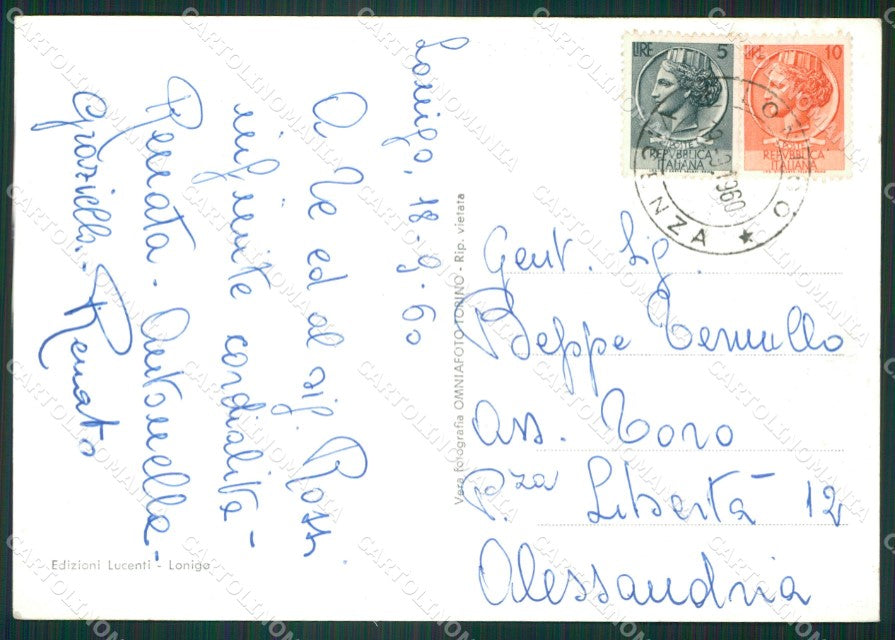 Lonigo, 18-9-60
A Te ed al sig. Rossi
infinite cordialità
Renata - Antonella -
Graziella - Renato
Edizioni Lucenti - Lonigo
Vera fotografia OMNIAFOTO TORINO - Rip. vietata
LIRE 5
REPVBBLICA
ITALIANA
LIRE 10
REPVBBLICA
ITALIANA
1960
Gent. Sig.
Beppe
Ass. Toro
P.zza Libertà 12
Alessandria
CARTOLINOMANIA